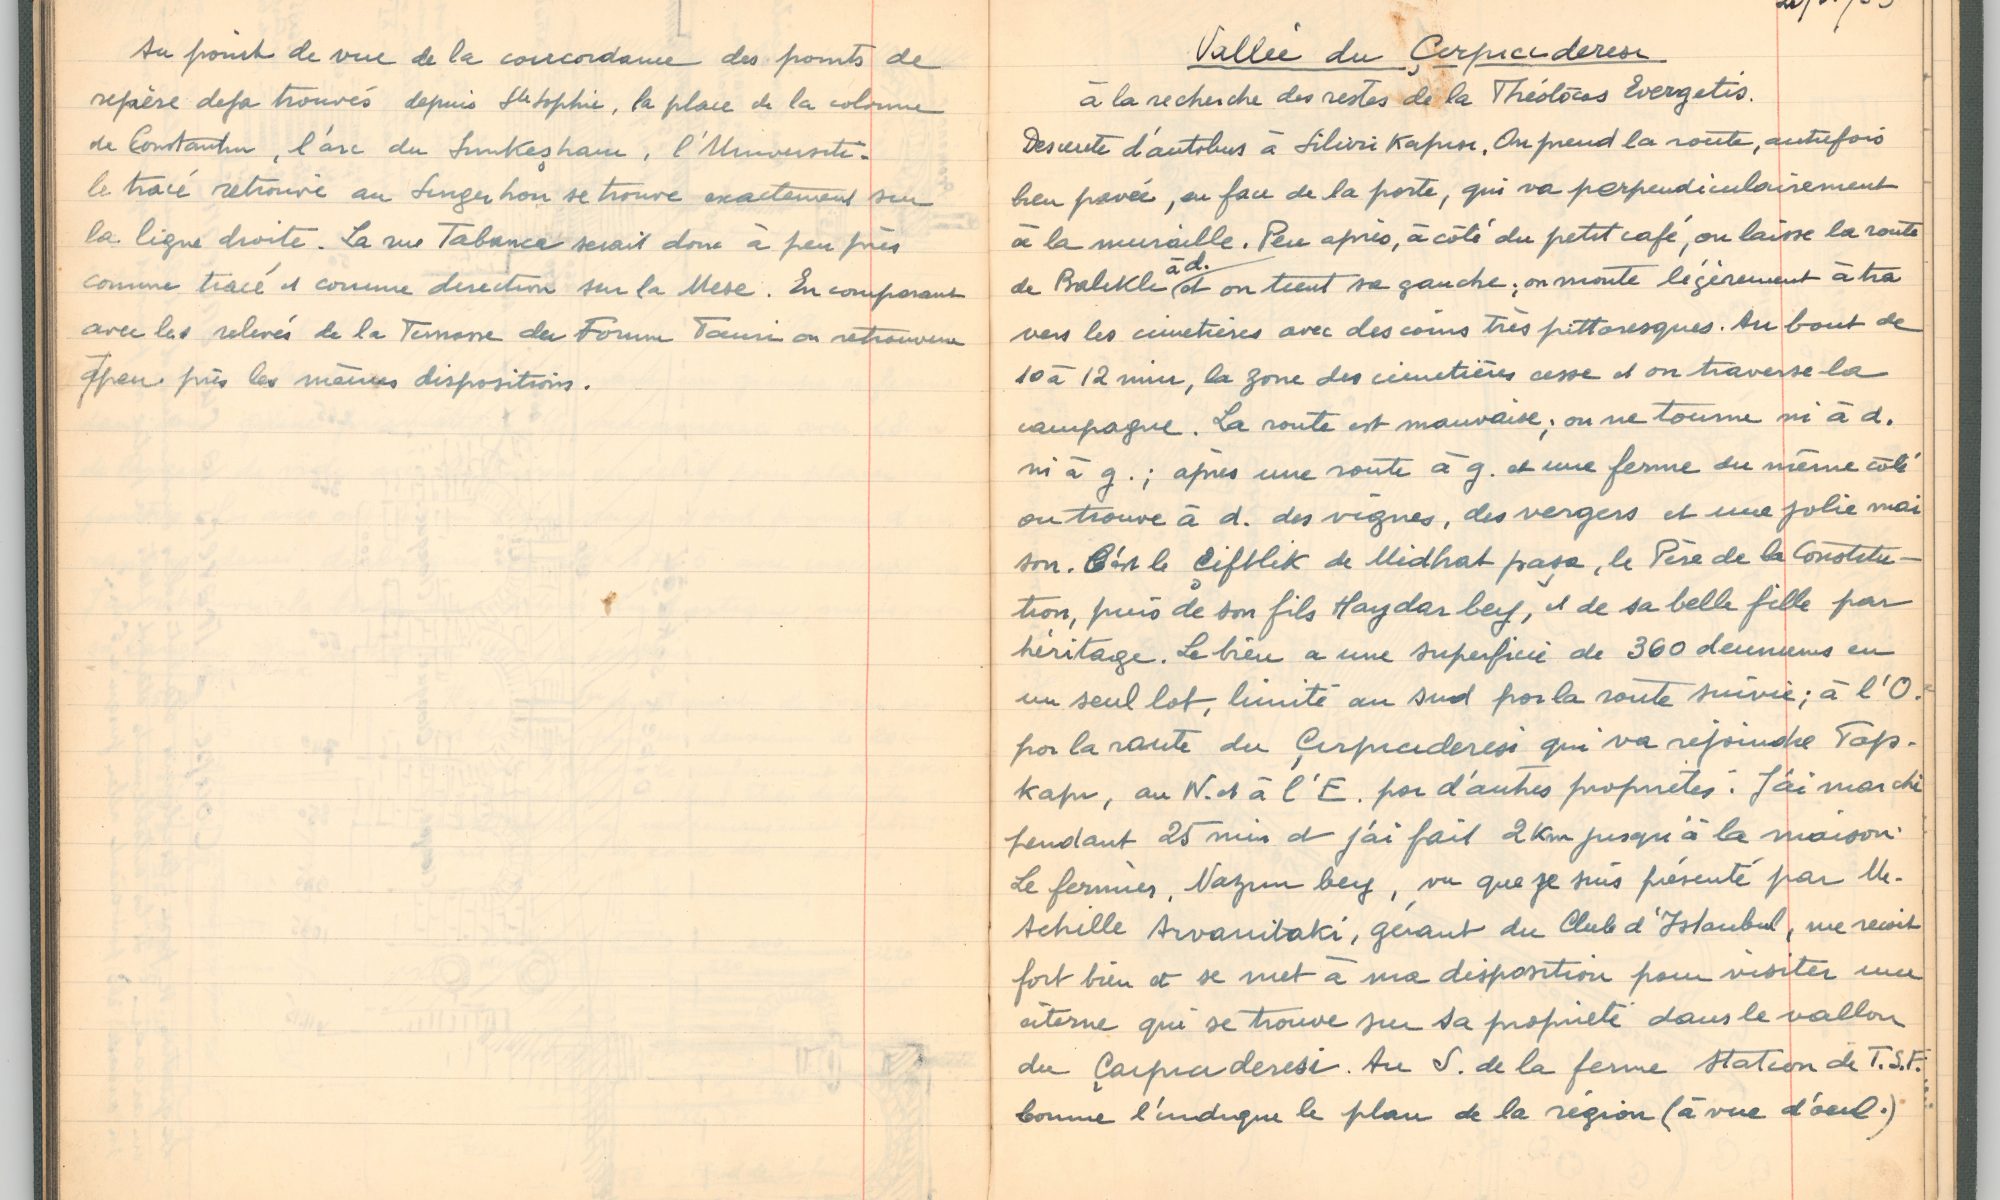 Au point de vue de la concordance des points de
repère deja trouvés depuis Ste Sophie, la place de la colonne
de Constantin, l'arc du Simkeşhane, l'Université.
le tracé retrouvé au Singerhon se trouve exactement sur
la ligne droite. La rue Tabanca serait donc à peu près
comme tracé et comme direction sur la Mese. En comparant
avec les relevés de la Terrasse du Forum Tauri on retrouvera
à peu près les mêmes dispositions.
Vallée du Çırpıcıderesi
à la recherche des restes de la Théotòcos Evergetis.
Descente d'autobus à Silivri Kapusı. On prend la route, autrefois
bien pavée, en face de la porte, qui va perpendiculairement
à la muraille. Peu après, à côté du petit café, on laisse la route
de Balıklı à d. et on tient sa gauche; on monte légèrement à tra
vers les cimetières avec des coins très pittoresques. Au bout de
10 à 12 min, la zone des cimetières cesse et on traverse la
campagne. La route est mauvaise; on ne tourne ni à d.
ni à g.; après une route à g. et une ferme du même côté
on trouve à d. des vignes, des vergers et une jolie mai
son. C'est le Çiftlik de Midhat paşa, le Père de la Constitu-
tion, puis de son fils Haydar bey, et de sa belle fille par
héritage. Le bien a une superficie de 360 deunums en
un seul lot, limité au sud par la route suivie; à l'O.
par la route du Çırpıcıderesi qui va rejoindre Top-
kapı, au N. et à l'E. par d'autres propriétés. J'ai marché
pendant 25 min et j'ai fait 2 Km jusqu'à la maison.
Le fermier, Nazım bey, vu que je suis présenté par M.
Achille Arvanitaki, gérant du Club d'Istanbul, me reçoit
fort bien et se met à ma disposition pour visiter une
citerne qui se trouve sur sa propriété dans le vallon
du Çarpıcıderesi. Au S. de la ferme station de T.S.F.
Comme l'indique le plan de la région (à vue d'oeil.)